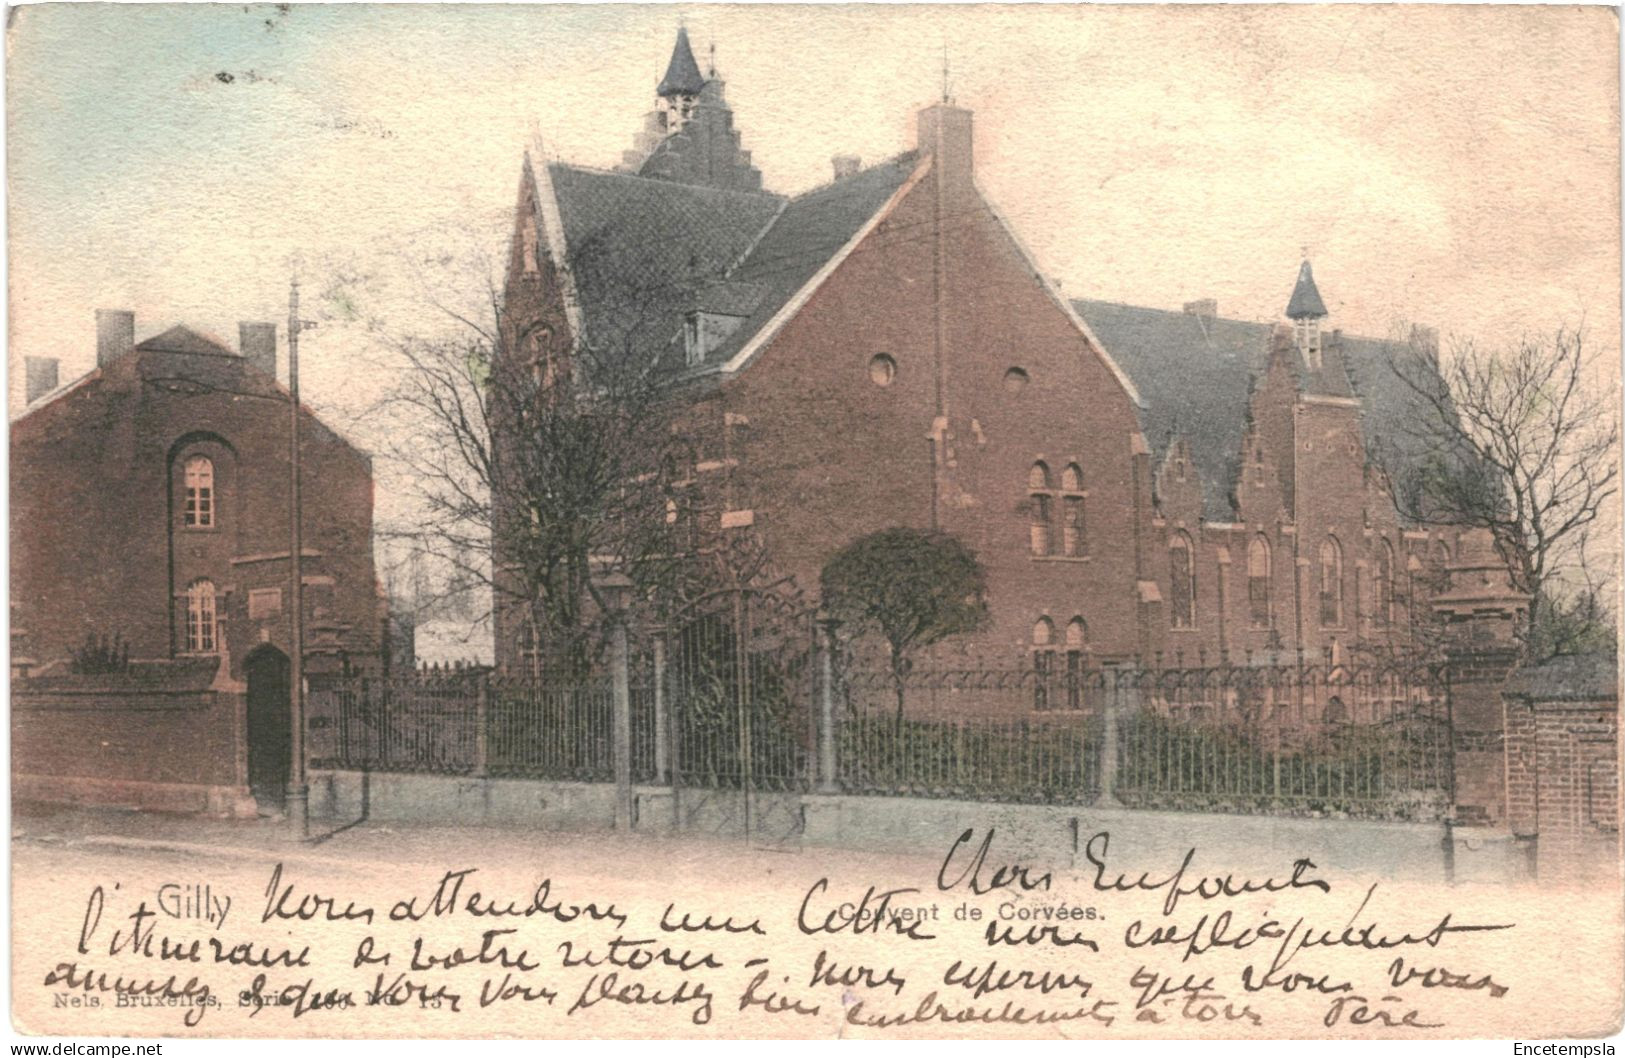 Chers Enfants,
Gilly
Nous attendons une lettre nous expliquant
Couvent de Corvées.
l'itineraire de votre retour - nous esperons que vous vous
amusez et que vous vous plaisez bien
embrassements à tous Père
Nels, Bruxelles, Série No 13
Encetempsla